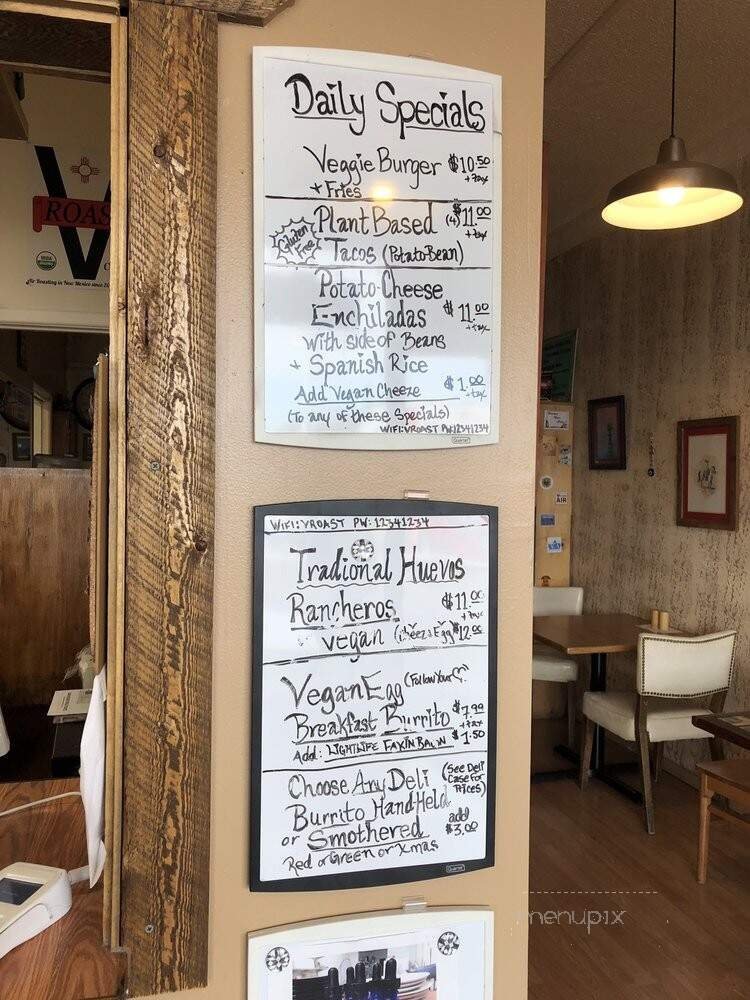 Daily Specials
Veggie Burger $10.50
+ Fries + tax
Gluten Free
Plant Based (4) $11.00
+ tax
Tacos (Potato-Bean)
Potato-Cheese
Enchiladas $11.00
+ tax
with side of Beans
+ Spanish Rice
Add Vegan Cheeze $1.00
+ tax
(To any of these Specials)
WIFI:VROAST PW:12341234
Quartet
WIFI:VROAST PW:12341234
Tradional Huevos
Rancheros $11.00
+ tax
vegan (cheez & Egg) $12.00
Vegan Egg (Follow Your ♡)
Breakfast Burrito $7.99
+ tax
Add: LIGHTLIFE FAKIN BACN $1.50
Choose Any Deli (See Deli
Case for
Prices)
Burrito Hand-Held
or Smothered add
$3.00
Red or Green or Xmas
Quartet
V
ROAS
USDA
Air Roasting in New Mexico since
AIR
menupix